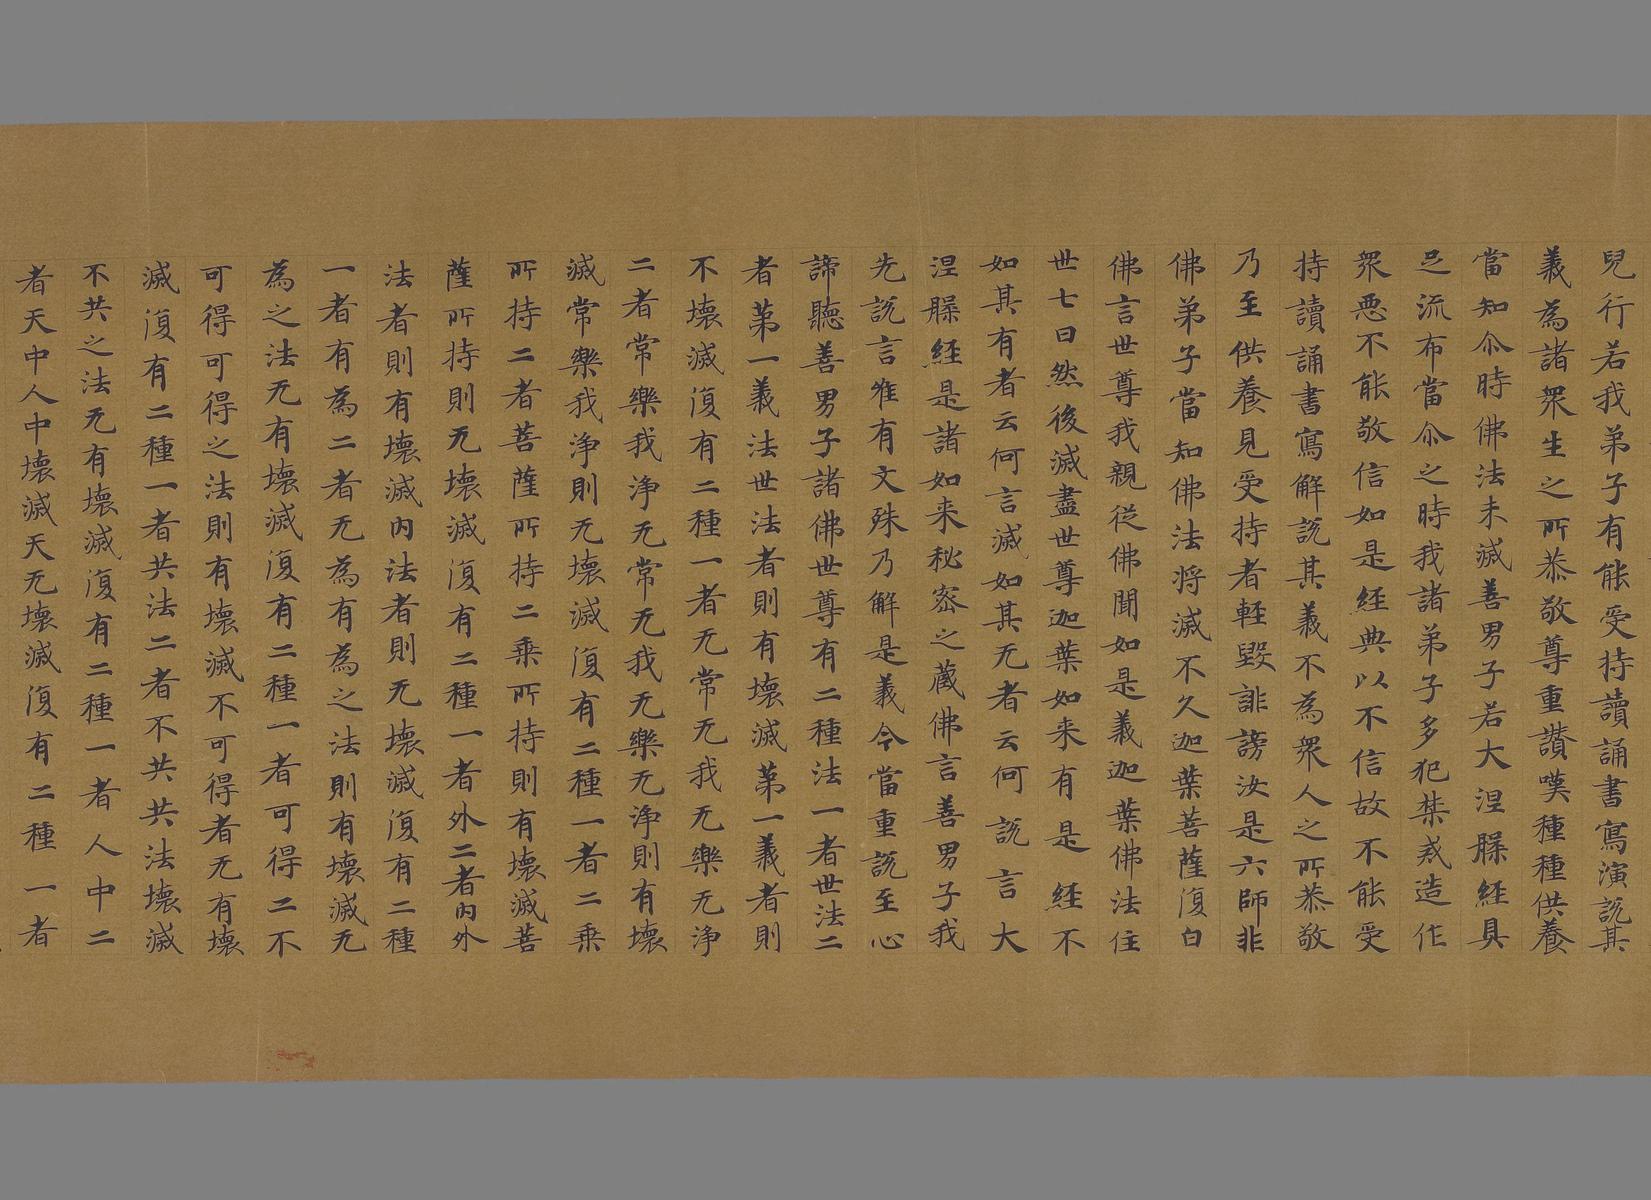 兒行若我弟子有能受持讀誦書寫演説其
義為諸衆生之所恭敬尊重讃嘆種種供養
當知尒時佛法未滅善男子若大涅槃經具
足流布當尒之時我諸弟子多犯禁戒造作
衆惡不能敬信如是經典以不信故不能受
持讀誦書寫解説其義不為衆人之所恭敬
乃至供養見受持者輕毀誹謗汝是六師非
佛弟子當知佛法将滅不久迦葉菩薩復白
佛言世尊我親従佛聞如是義迦葉佛法住
世七日然後滅盡世尊迦葉如来有是經不
如其有者云何言滅如其无者云何説言大
涅槃經是諸如来秘密之蔵佛言善男子我
先説言唯有文殊乃解是義今當重説至心
諦聽善男子諸佛世尊有二種法一者世法二
者苐一義法世法者則有壊滅苐一義者則
不壊滅復有二種一者无常无我无樂无浄
二者常樂我浄无常无我无樂无浄則有壊
滅常樂我浄則无壊滅復有二種一者二乗
所持二者菩薩所持二乗所持則有壊滅菩
薩所持則无壊滅復有二種一者外二者内外
法者則有壊滅内法者則无壊滅復有二種
一者有為二者无為有為之法則有壊滅无
為之法无有壊滅復有二種一者可得二不
可得可得之法則有壊滅不可得者无有壊
滅復有二種一者共法二者不共共法壊滅
不共之法无有壊滅復有二種一者人中二
者天中人中壊滅天无壊滅復有二種一者